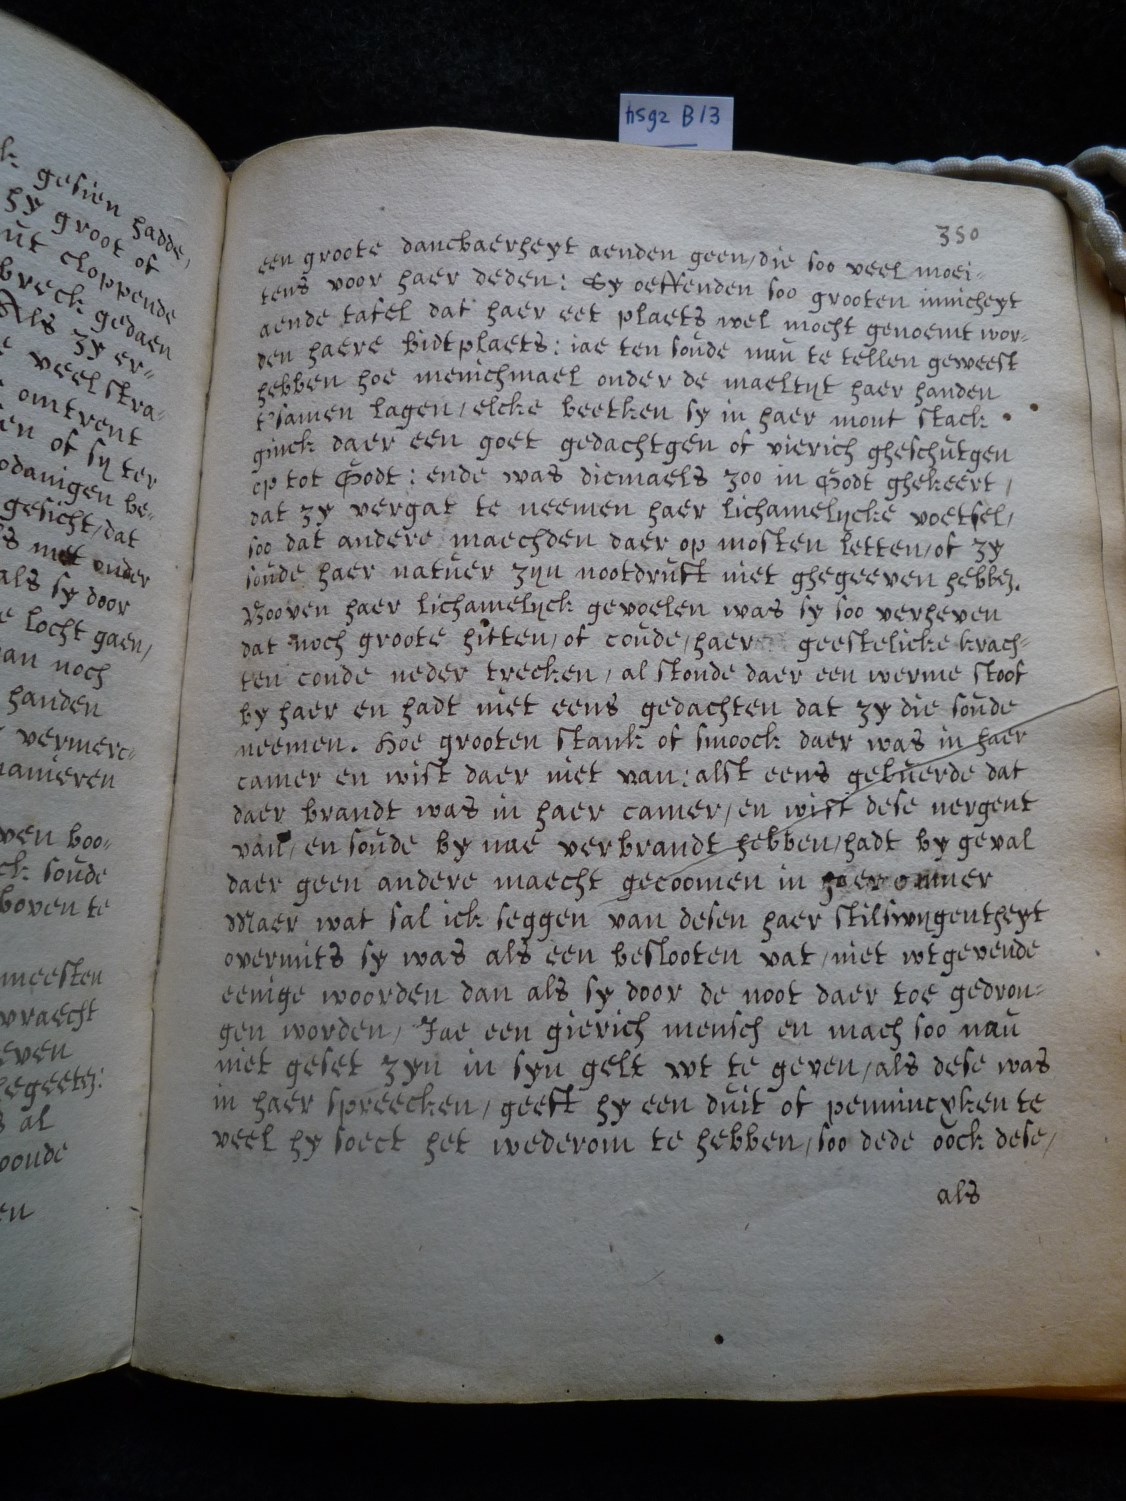 hsgz B13
k gesien hadde,
hy groot of
ut cloppende
breck gedaen
Als zy er-
veel stra-
omtrent
en of sy ter
odanigen be-
gesicht/dat
s met onder
als sy door
e locht gaen/
an noch
handen
vermerc-
manieren
ven boo-
ck soude
boven te
meesten
vraecht
even
s al
oonde
en
350
een groote dancbaerheyt aenden geen/die soo veel moei-
tens voor haer deden: Sy oeffenden soo grooten innicheyt
aende tafel dat haer eet plaets wel mocht genoemt wor-
den haere bidtplaets: iae ten soude nau te tellen geweest
hebben hoe menichmael onder de maeltyt haer handen
t'samen lagen/elcke beetken sy in haer mont stack
ginck daer een goet gedachtgen of vierich gheschutgen
op tot Godt: ende was dicmaels zoo in Godt ghekeert/
dat zy vergat te neemen haer lichamelycke voetsel/
soo dat andere maechden daer op mosten letten/of zy
soude haer natuer zyn nootdruft niet ghegeeven hebbẽ.
Booven haer lichamelyck gevoelen was sy soo verheven
dat noch groote hitten/of coude/haer geestelicke krach-
ten conde neder trecken/al stonde daer een werme stoof
by haer en hadt niet eens gedachten dat zy die soude
neemen. Hoe grooten stank of smoock daer was in haer
camer en wist daer niet van: alst eens gebuerde dat
daer brandt was in haer camer/en wist dese nergent
van/en soude by nae verbrandt hebben/hadt by geval
daer geen andere maecht gecoomen in haer
Maer wat sal ick seggen van desen haer stilswygentheyt
overmits sy was als een beslooten vat/niet wtgevende
eenige woorden dan als sy door de noot daer toe gedron-
gen worden/Jae een gierich mensch en mach soo nau
niet geset zyn in syn gelt wt te geven/als dese was
in haer spreecken/geeft hy een duit of pennincxken te
veel hy soect het wederom te hebben/soo dede oock dese/
als